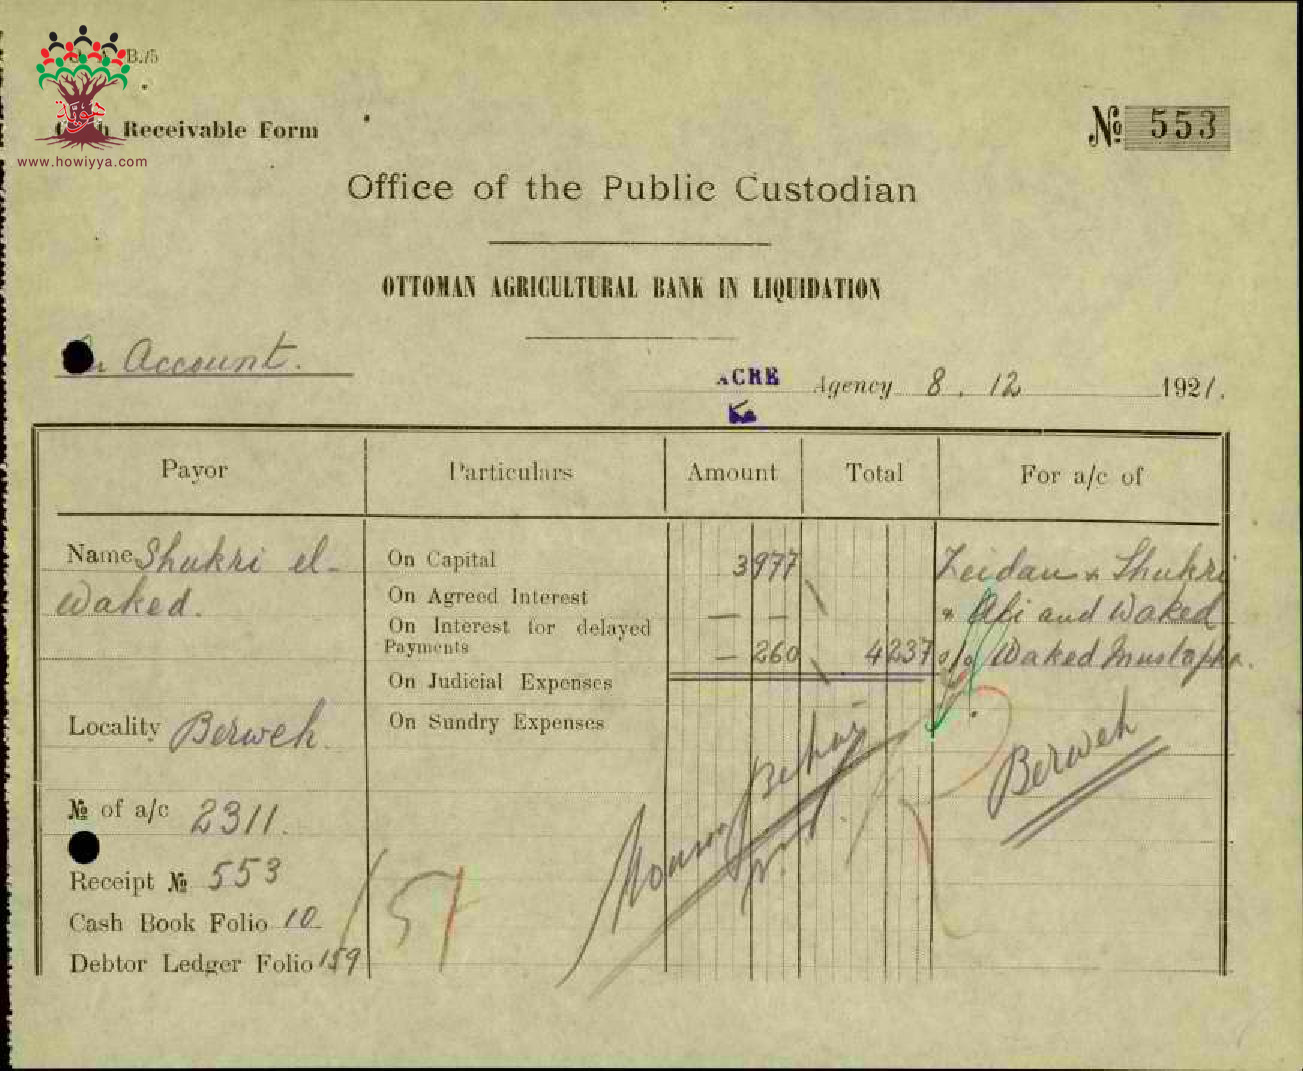 B./5
هوية
Receivable Form
www.howiyya.com
№ 553
Office of the Public Custodian
OTTOMAN AGRICULTURAL BANK IN LIQUIDATION
Account.
ACRE Agency 8. 12 1921.
Payor Particulars Amount Total For a/c of
Name Shukri el-
Waked.
On Capital 3977
On Agreed Interest — —
On Interest for delayed
Payments — 260 4237
On Judicial Expenses
On Sundry Expenses
Zeidan & Shukri
" Ali and Waked
o/o Waked Mustapha.
Berweh
Locality Berweh.
№ of a/c 2311.
Receipt № 553
Cash Book Folio 10
Debtor Ledger Folio 159